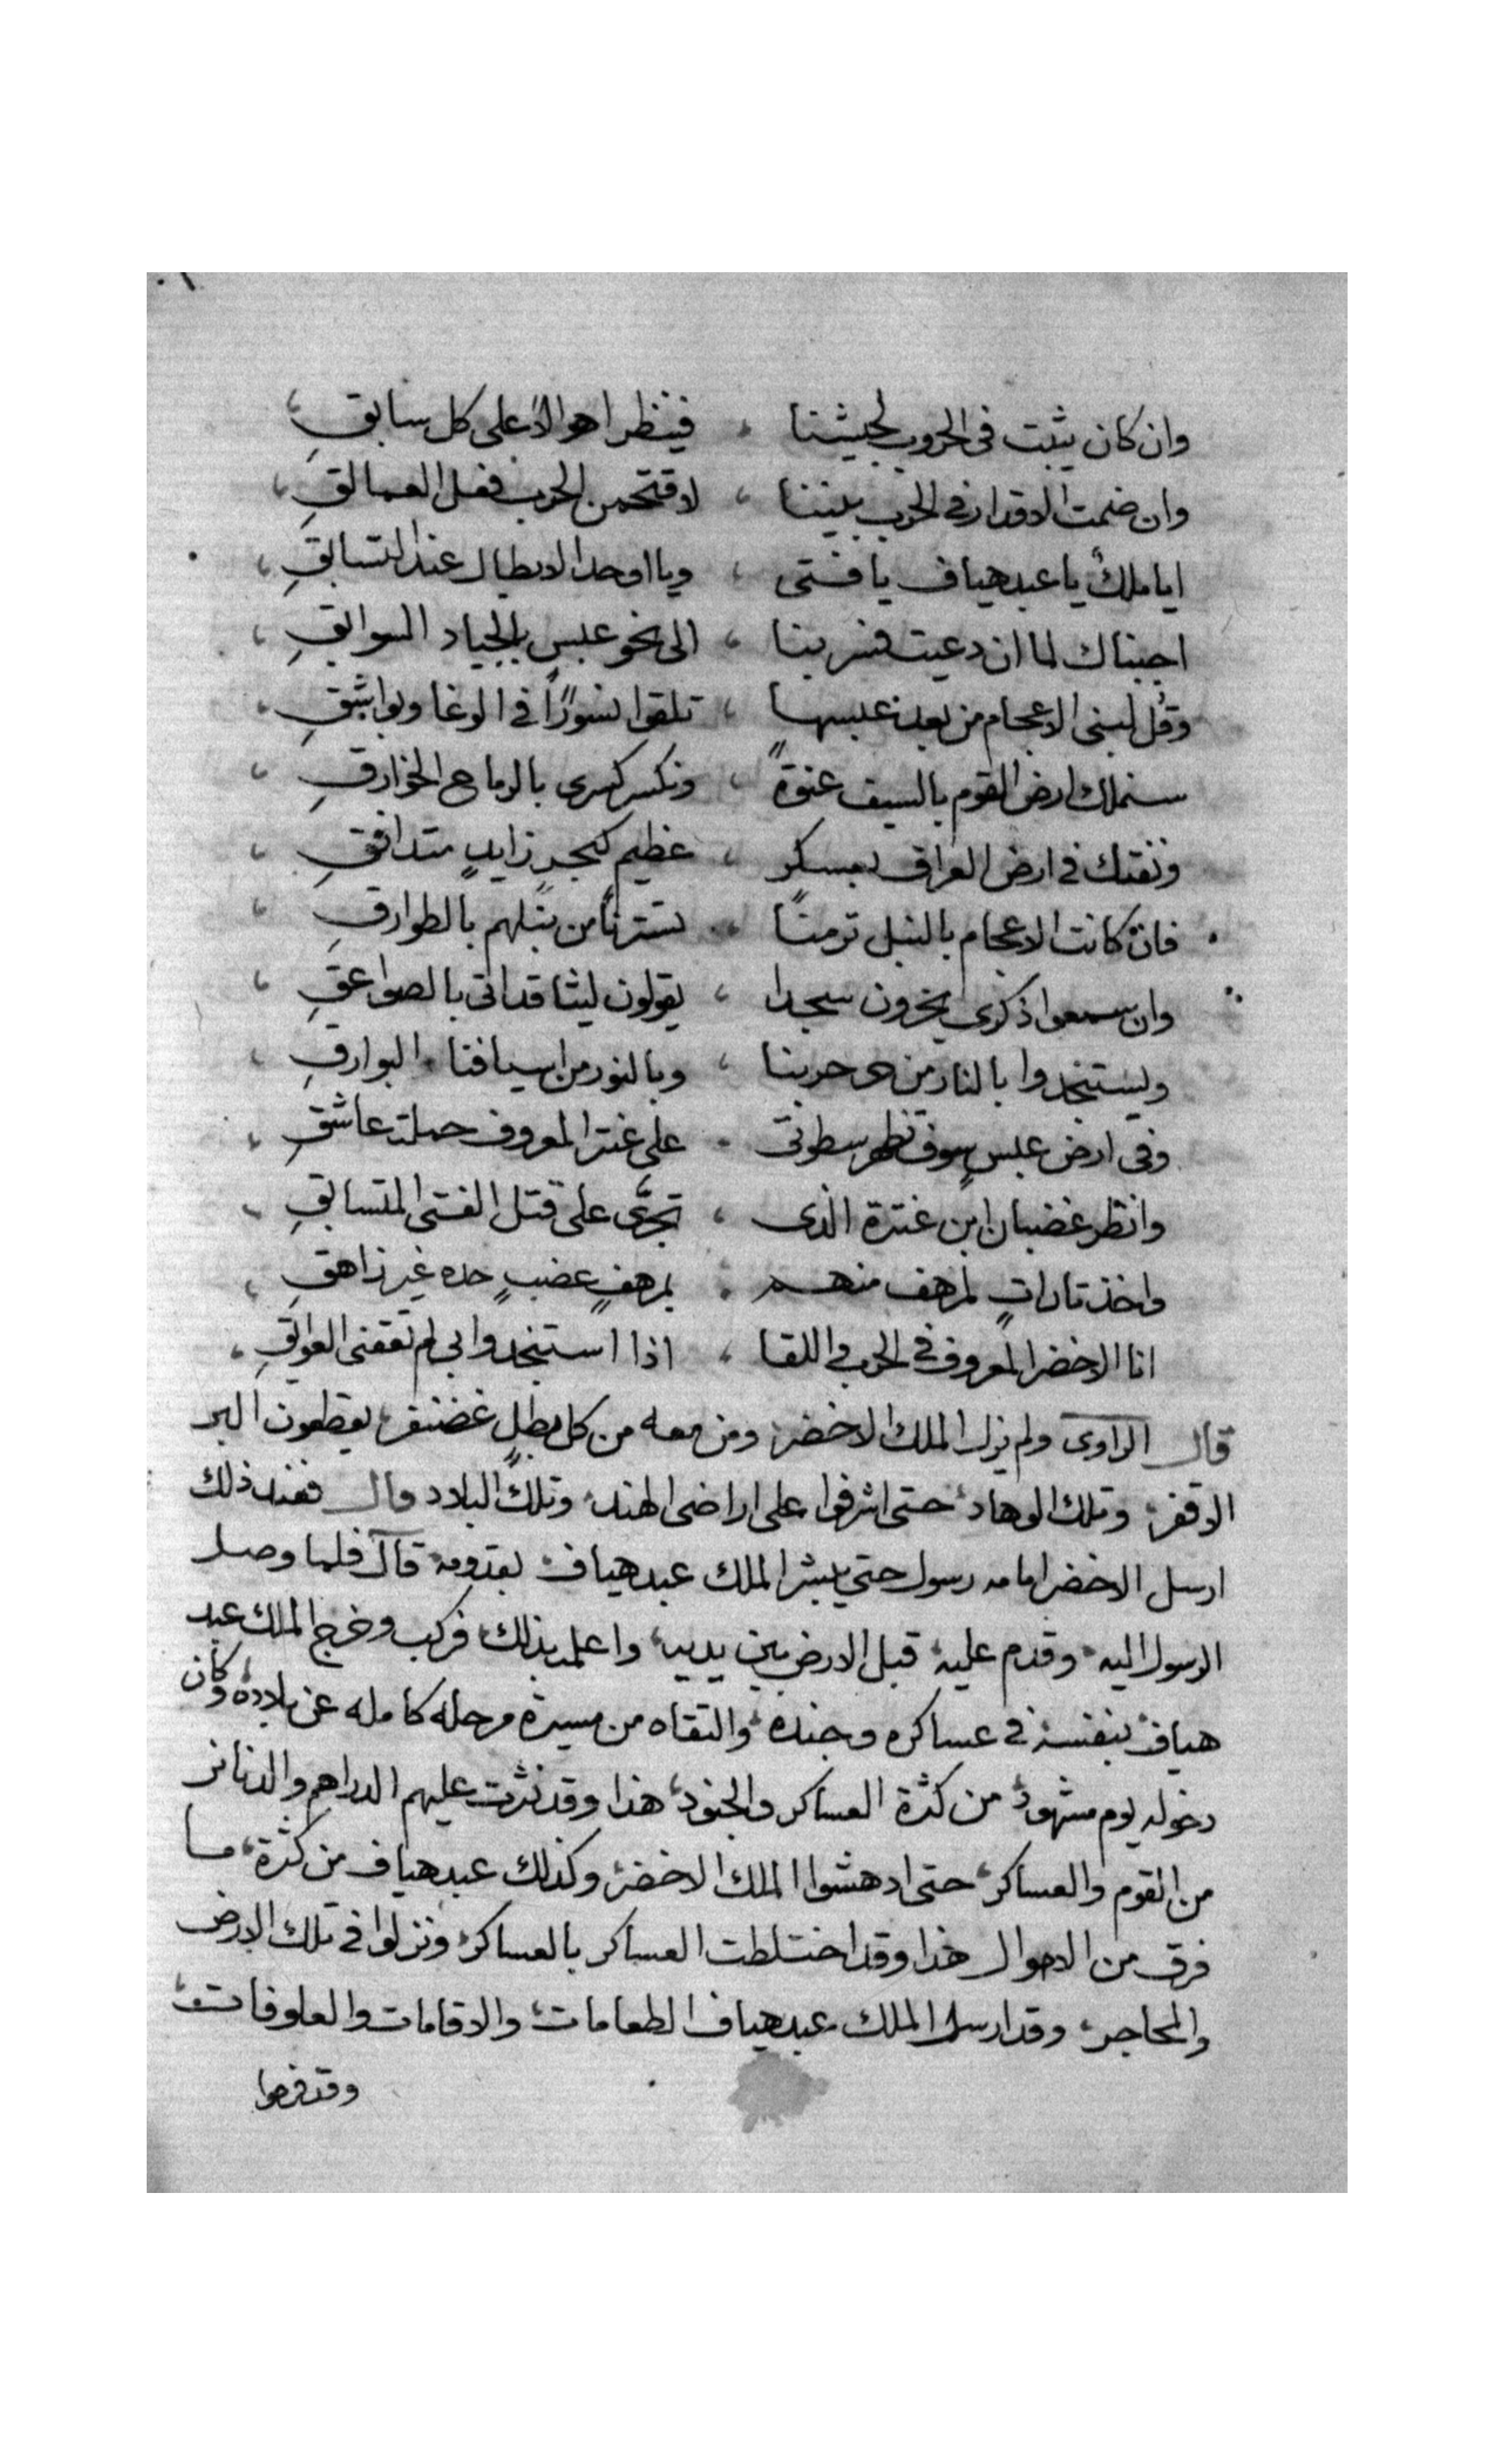 وان كان يثبت في الحروب لجيشنا ، فينظر اهوالاً على كل سابقِ ،
وان ضمت الاقدار في الحرب بيننا ، لاقتحمن الحرب فعل العمالقِ ،
ايا ملكٌ يا عبد هياف يا فتى ، ويا اوحد الابطال عند التسابقِ ،
اجبناك لما ان دعيت فسر بنا ، الى نحو عبسٍ بالجياد السوابقِ ،
وقُل لبنى الاعجام من بعد عبسها ، تلقوا نسورًا في الوغا وبواشقِ ،
سنملك ارض القوم بالسيف عنوةً ، ونكسر كسرى بالرماح الخوارقِ ،
ونفتك في ارض العراق بعسكرٍ ، عظيم كبحرٍ زايدٍ متدافقِ ،
فان كانت الاعجام بالنبل ترمنا ، تسترنا من نبلهم بالطوارقِ ،
وان سمعوا ذكرى يخرون سجدا ، يقولون ليثا قد اتى بالصواعقِ ،
ويستنجدوا بالنار من حربنا ، وبالنور من اسيافنا البوارقِ ،
وفى ارض عبسٍ سوف تظهر سطوتى ، على عنتر المعروف حملت عاشقِ ،
وانظر غضبان ابن عنترة الذى ، تجرَّى على قتل الفتى المتسابقِ ،
واخذ تاراتٍ لمرهف منهم ، بمرهفٍ عضبٍ حده غير زاهقِ ،
انا الاخضر المعروف في الحرب واللقا ، اذا استنجدوا بى لم تعقنى العوايقِ ،
قال الراوى ولم يزل الملك الاخضر، ومن معه من كل بطلٍ غضنفر، يقطعون البر
الاقفر، وتلك الوهاد، حتى اشرفوا على اراضى الهند، وتلك البلاد قال فعند ذلك
ارسل الاخضر امامه رسول حتى يبشر الملك عبد هياف، بقدومه قال فلما وصل
الرسول اليه، وقدم عليه، قبل الارض بين يديه، واعلمه بذلك، فركب وخرج الملك عبد
هياف بنفسه في عساكره وجنده، والتقاه من مسيرة مرحله كامله عن بلاده، وكان
دخوله يوم مشهود، من كثرة العساكر والجنود، هذا وقد نثرت عليهم الدراهم والدنانر
من القوم والعساكر، حتى ادهشوا الملك الاخضر، وكذلك عبد هياف من كثرة، ما
فرق من الاموال هذا وقد اختلطت العساكر بالعساكر، ونزلوا في تلك الارض
والمحاجر، وقد ارسل الملك عبد هياف الطعامات، والاقامات والعلوفات،
وقد فرحوا